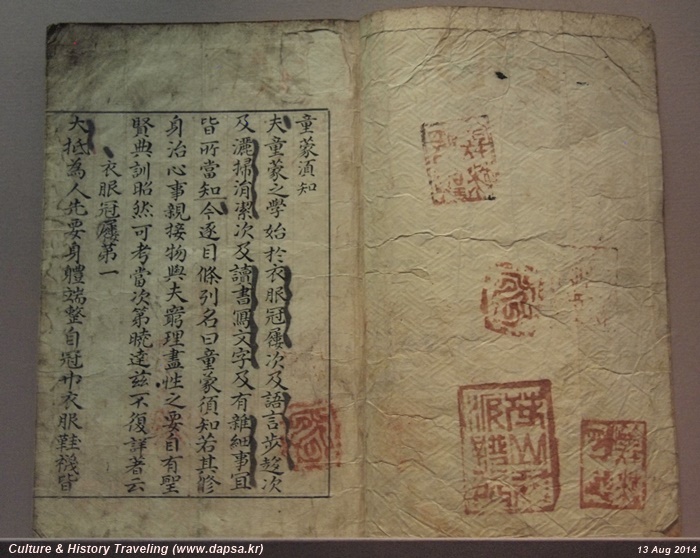 童蒙湏知
夫童蒙之學始於衣服冠屨次及語言步趍次
及灑掃涓潔次及讀書寫文字及有雜細事宜
皆所當知今逐目條列名曰童蒙須知若其修
身治心事親接物與夫窮理盡性之要自有聖
賢典訓昭然可考當次第曉達兹不復詳著云
衣服冠屨第一
大抵為人先要身體端整自冠巾衣服鞋襪皆
Culture & History Traveling (www.dapsa.kr)
13 Aug 2014